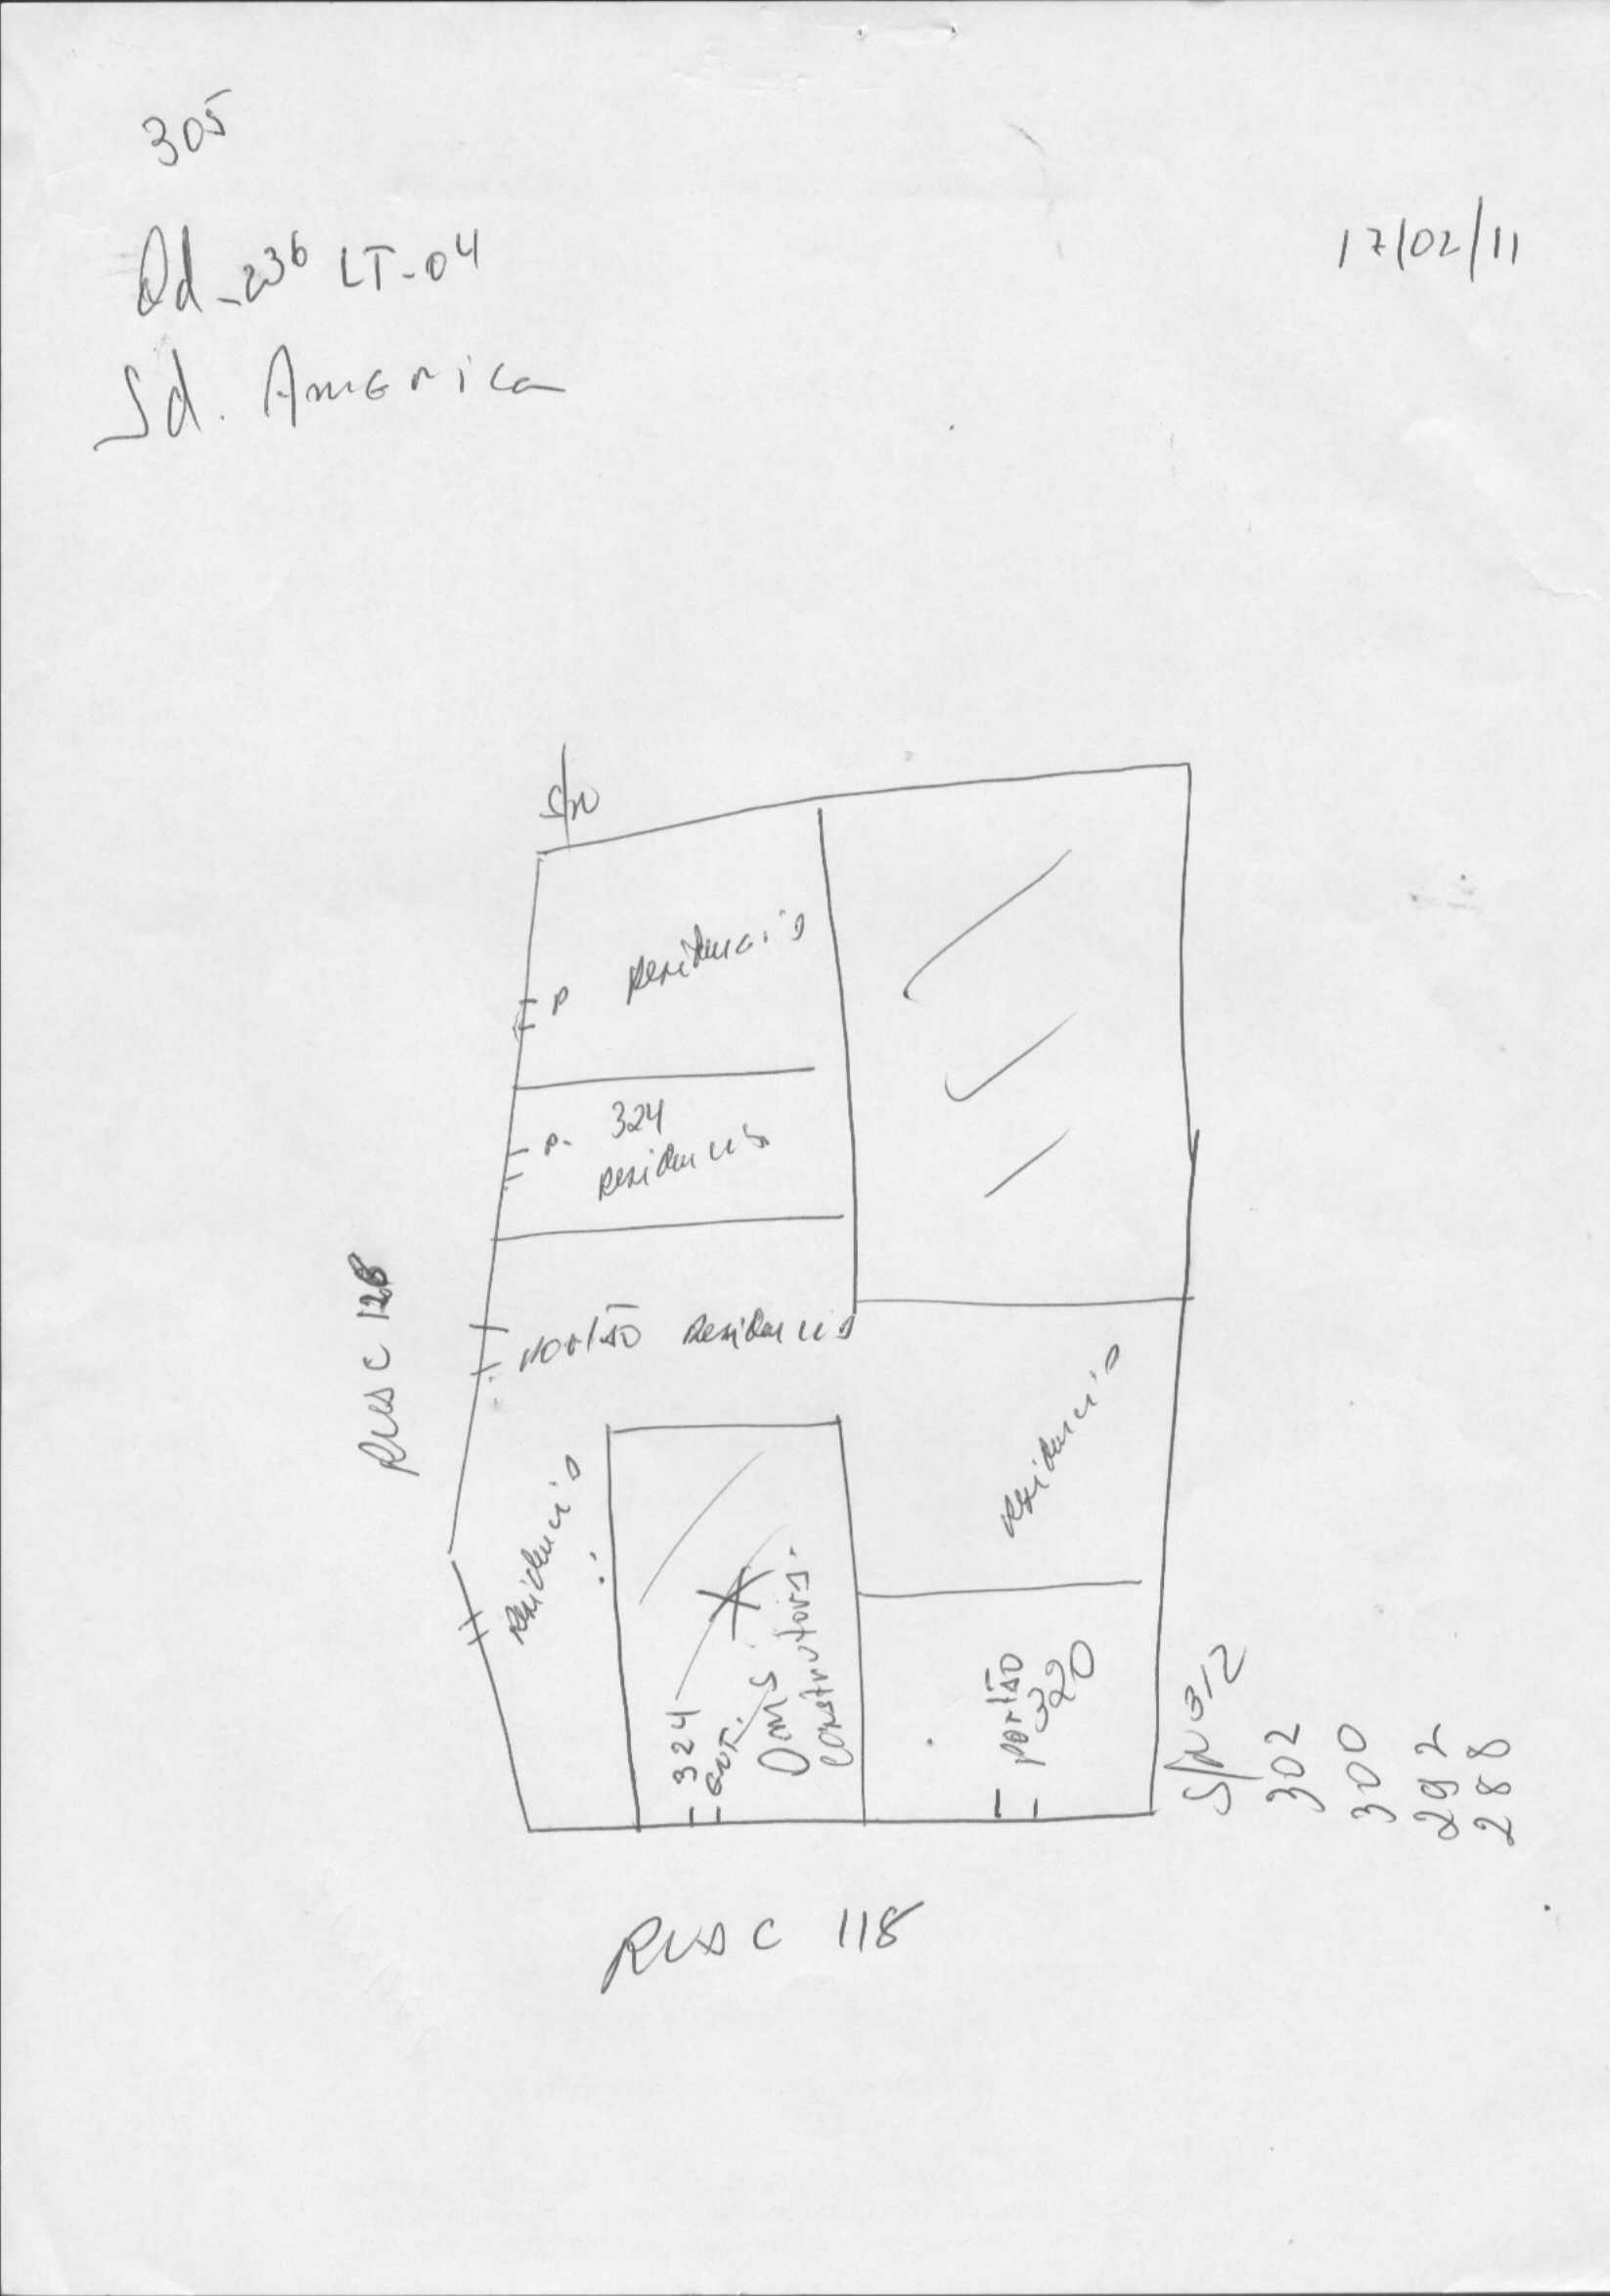 305
17/02/11
Qd-236 LT-04
Jd. America
S/N
P Residencia
P. 324
Residencia
Portão Residencia
Rua C 128
Residencia
Residencia
324
ent.
DMS
Construtora.
portão
320
S/N 312
302
300
292
288
Rua C 118